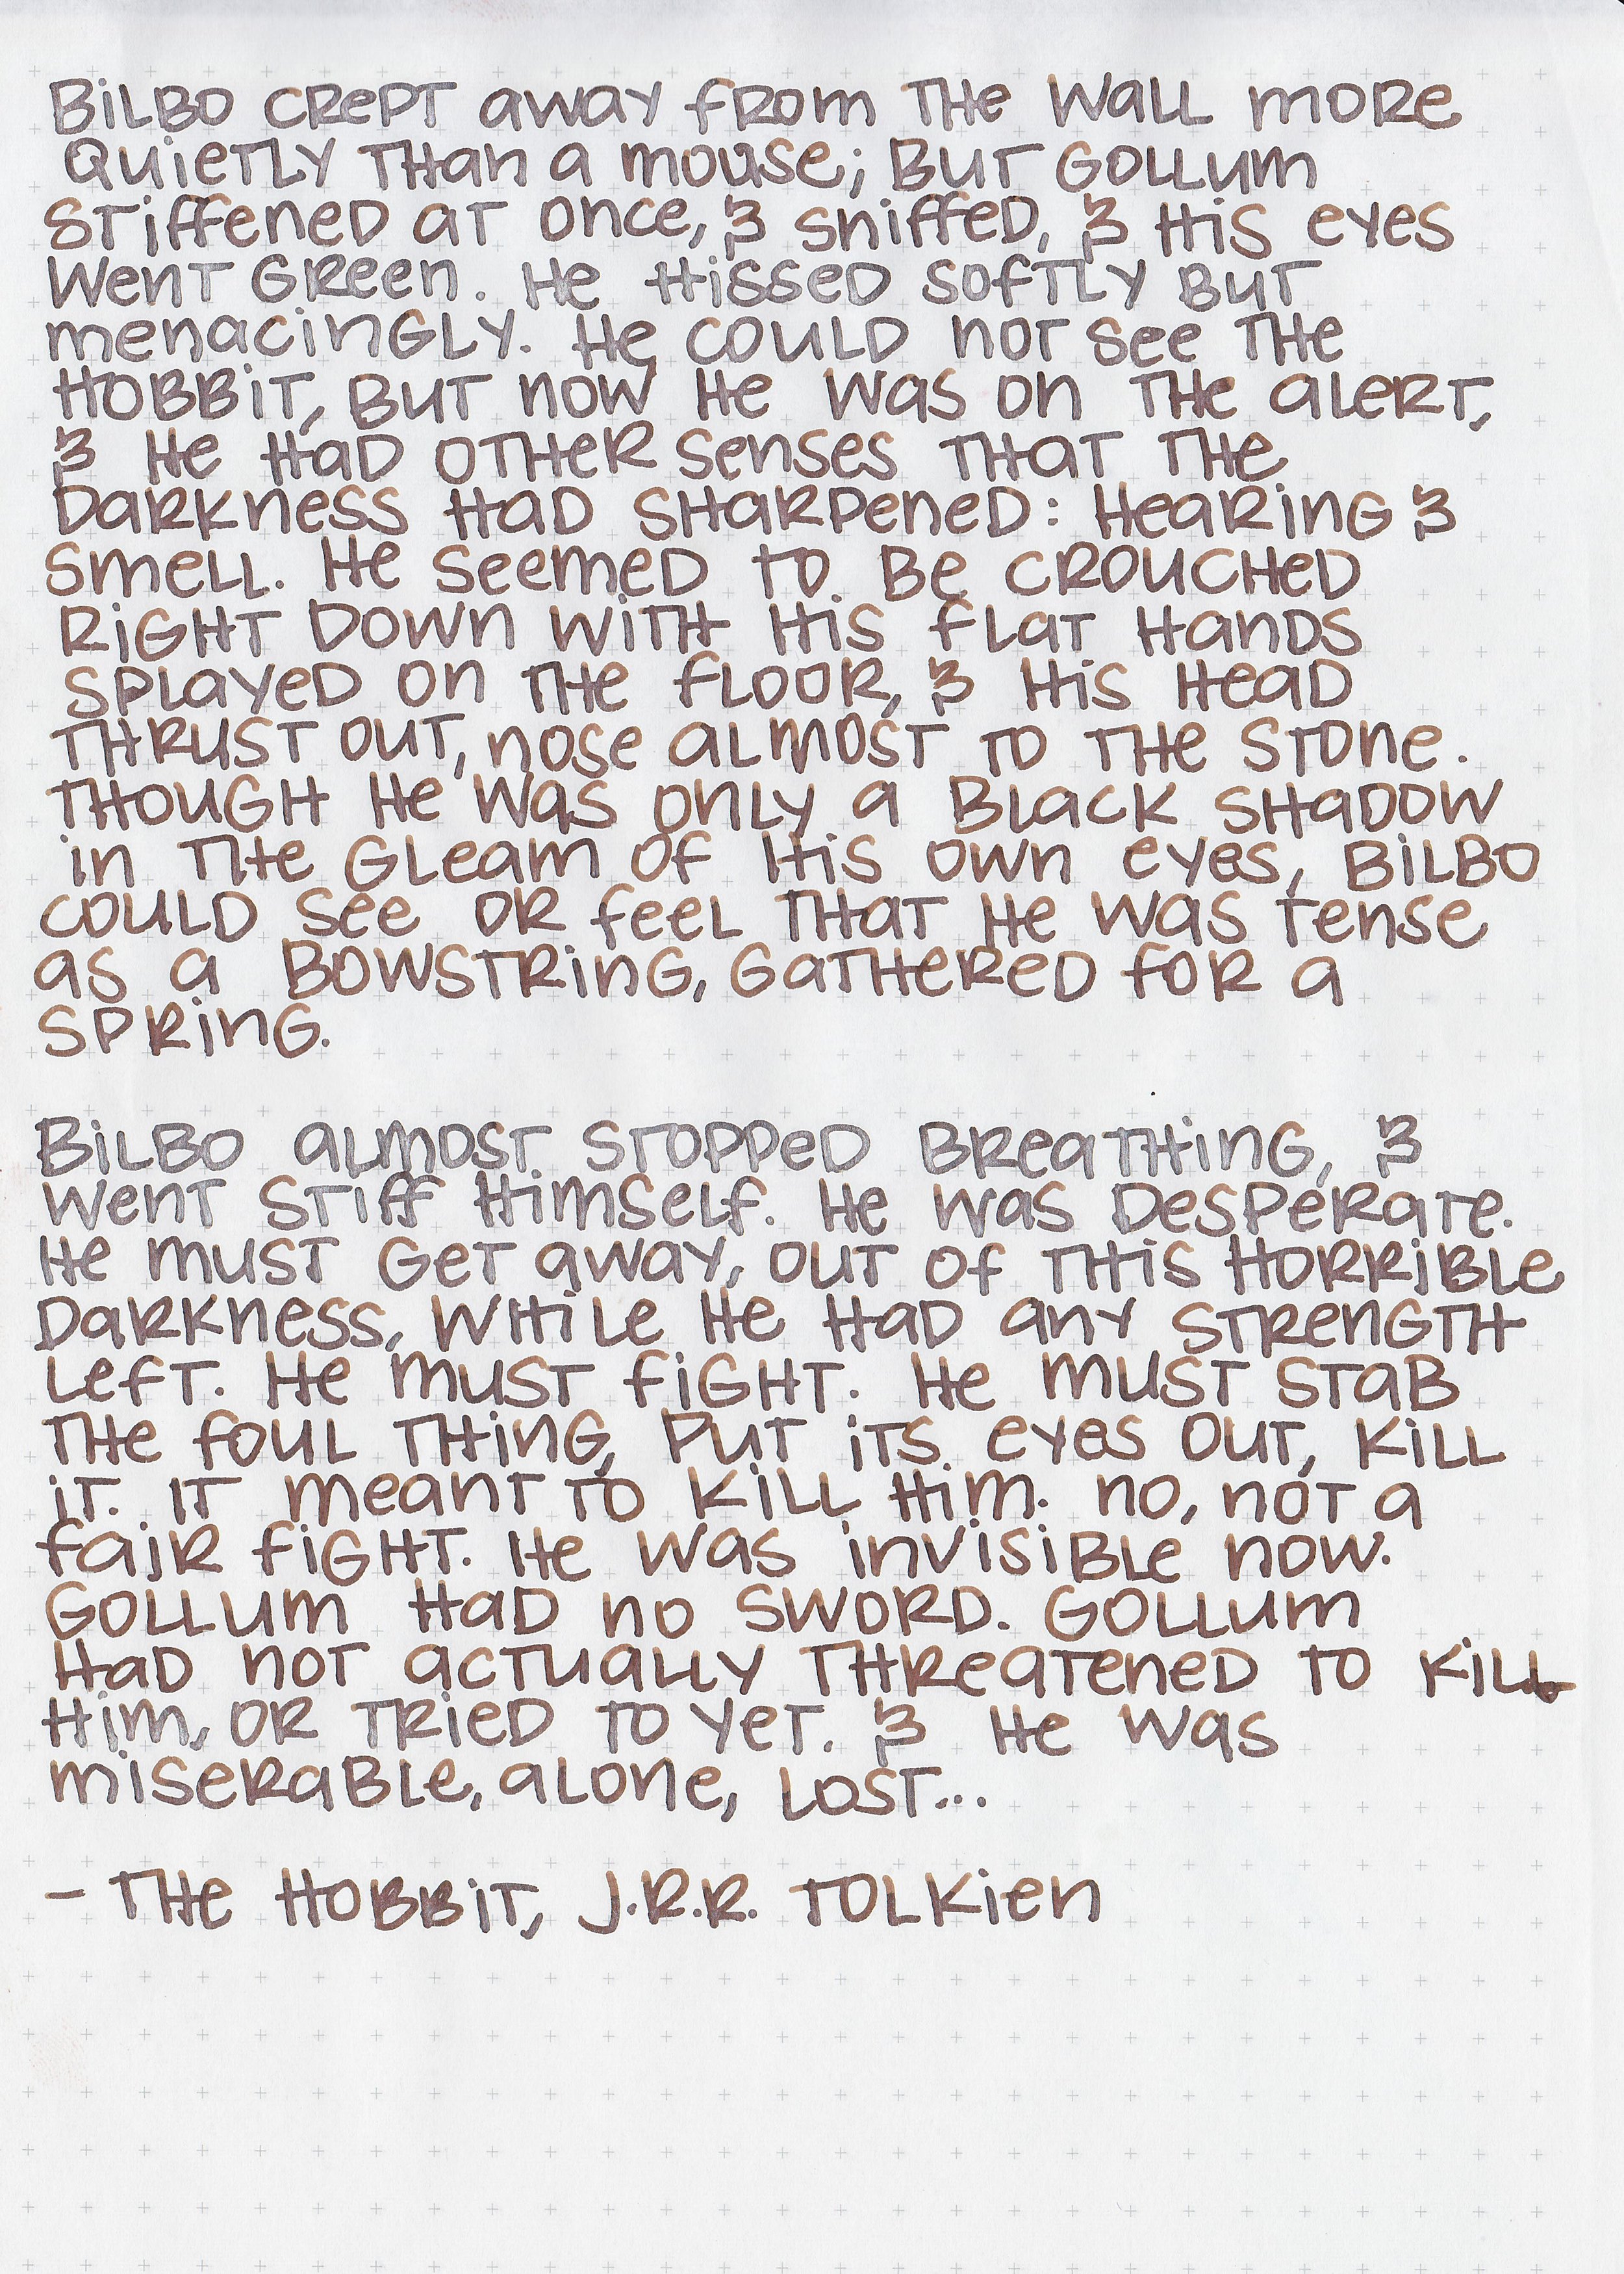 Bilbo crept away from the wall more
quietly than a mouse; but Gollum
stiffened at once, & sniffed, & his eyes
went green. He hissed softly but
menacingly. He could not see the
hobbit, but now he was on the alert,
& he had other senses that the
darkness had sharpened: hearing &
smell. He seemed to be crouched
right down with his flat hands
splayed on the floor, & his head
thrust out, nose almost to the stone.
Though he was only a black shadow
in the gleam of his own eyes, Bilbo
could see or feel that he was tense
as a bowstring, gathered for a
spring.
Bilbo almost stopped breathing, &
went stiff himself. He was desperate.
He must get away, out of this horrible
darkness, while he had any strength
left. He must fight. He must stab
the foul thing, put its eyes out, kill
it. It meant to kill him. No, not a
fair fight. He was invisible now.
Gollum had no sword. Gollum
had not actually threatened to kill
him, or tried to yet. & he was
miserable, alone, lost...
- The Hobbit, J.R.R. Tolkien